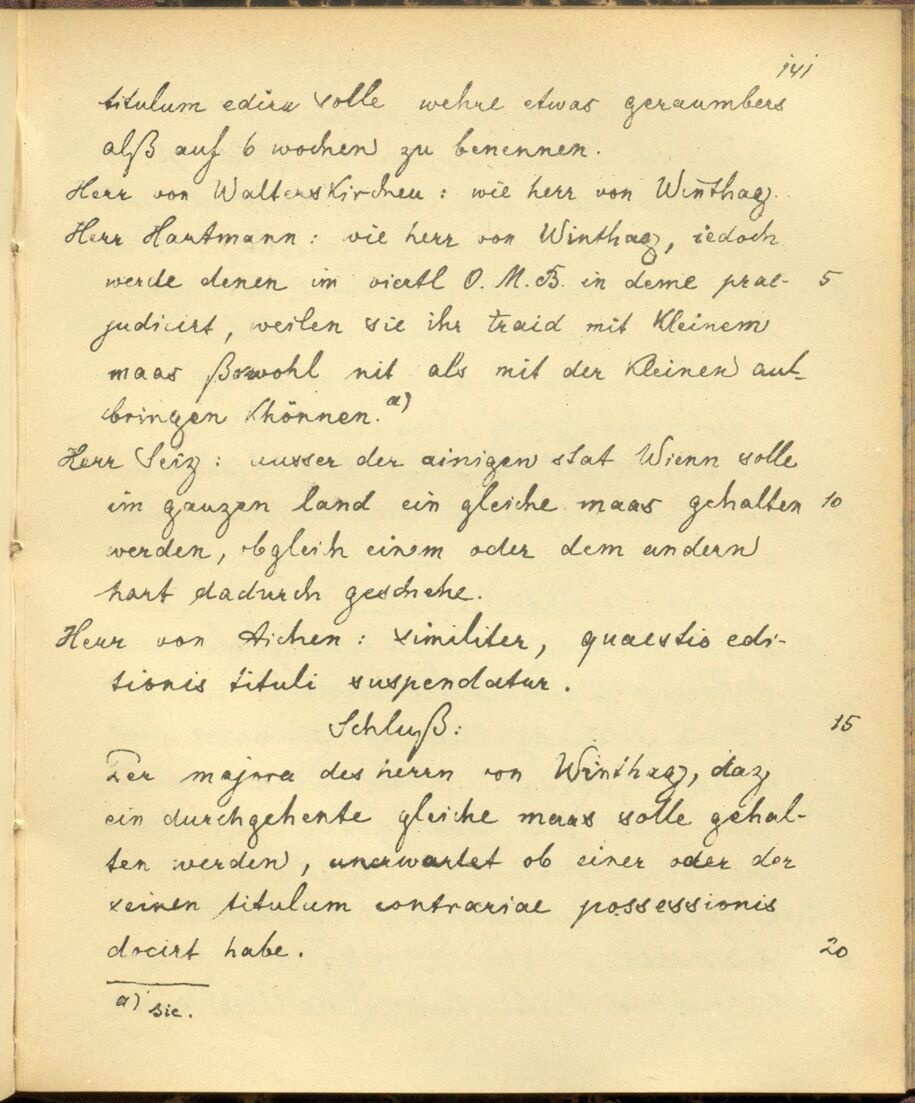 141
titulum edira solle wehre etwas geraumbers
alß auf 6 wochen zu benennen.
Herr von Walterskirchen: wie herr von Winthag.
Herr Hartmann: wie herr von Winthag, iedoch
werde denen im viertl O. M. B. in deme prae- 5
judicirt, weilen sie ihr traid mit kleinem
maas ßowohl nit als mit der kleinen auf-
bringen khönnen.a)
Herr Seiz: ausser der ainigen stat Wienn solle
im ganzen land ein gleiche maas gehalten 10
werden, obgleich einem oder dem andern
hart dadurch geschehe.
Herr von Aichen: similiter, quaestio edi-
tionis tituli suspendatur.
Schluß: 15
Per majora des herrn von Winthag, daz
ein durchgehente gleiche maas solle gehal-
ten werden, unerwartet ob einer oder der
seinen titulum contrariae possessionis
docirt habe. 20
a) sic.